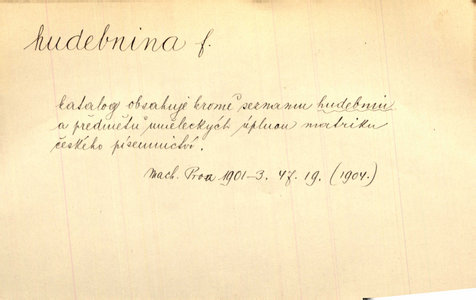 hudebnina f.
katalog obsahuje kromě seznamu hudebnin
a předmětů uměleckých úplnou matriku
českého písemnictví.
Mach. Proza 1901–3. 47. 19. (1904.)